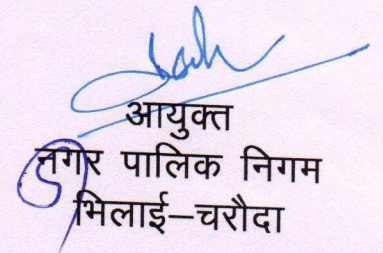 आयुक्त
नगर पालिक निगम
भिलाई–चरौदा